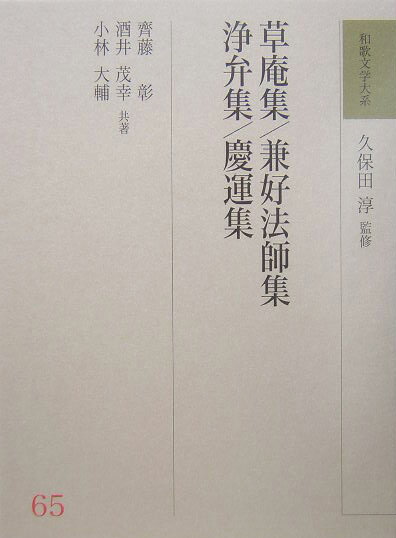 和歌文学大系
久保田 淳 監修
草庵集/兼好法師集
浄弁集/慶運集
齊藤 彰
酒井 茂幸 共著
小林 大輔
65